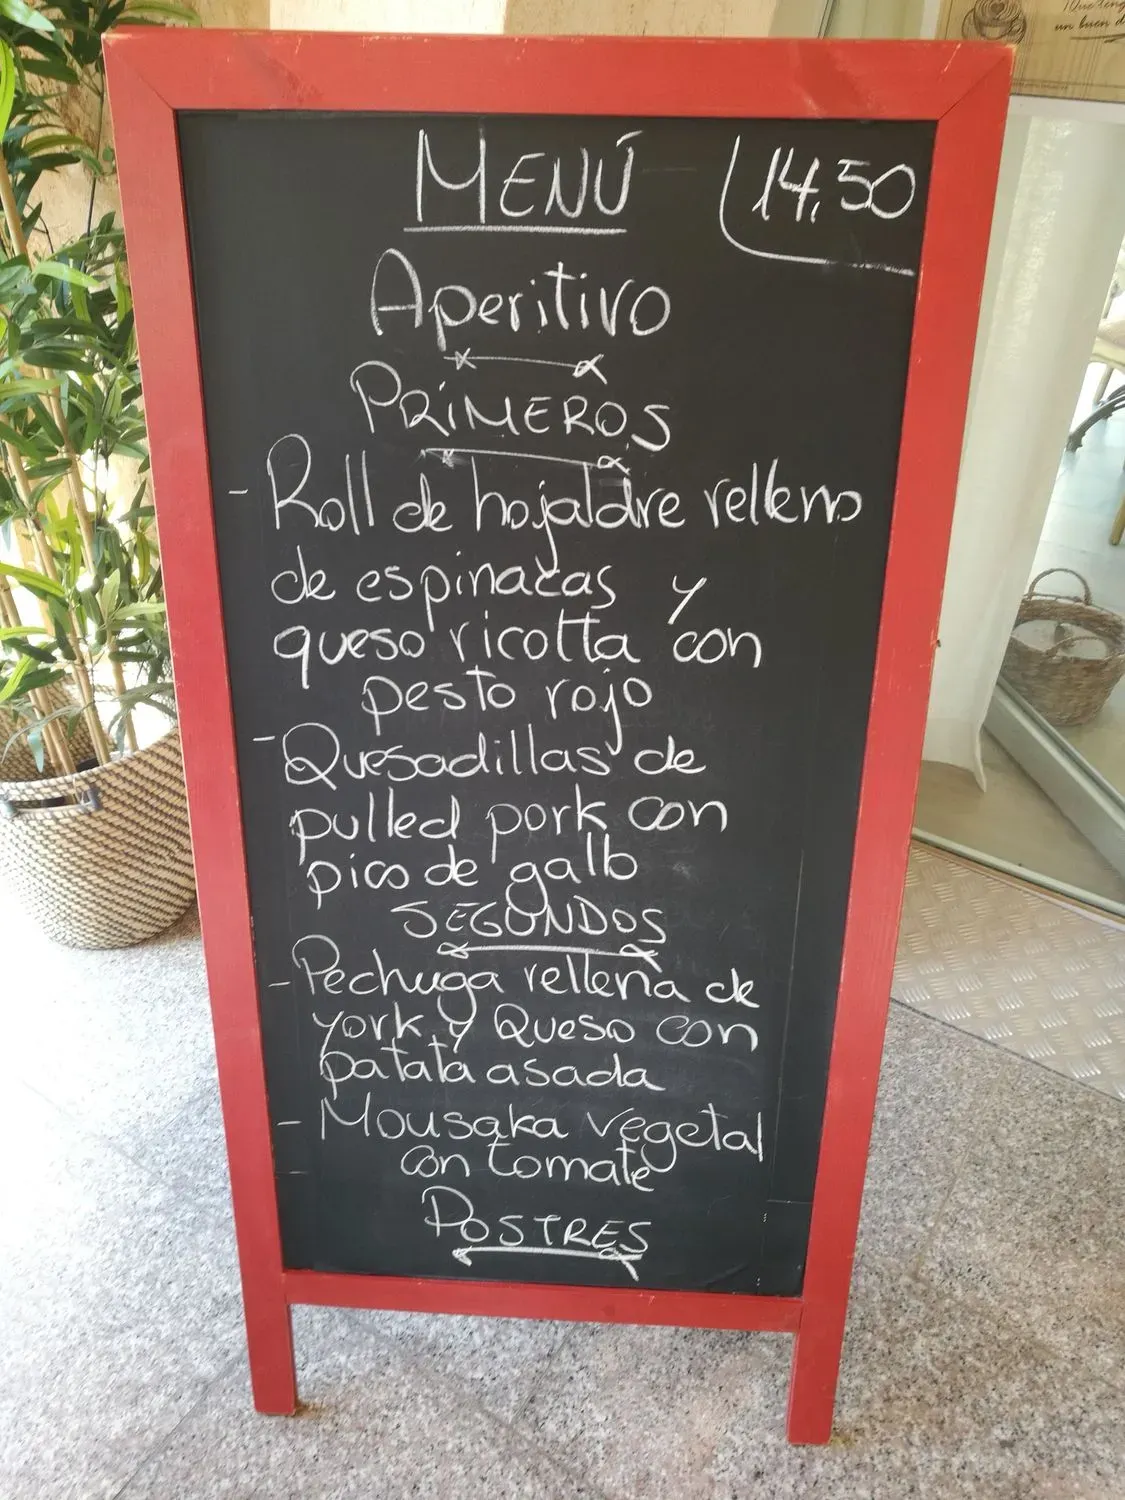 MENÚ 14,50
Aperitivo
PRIMEROS
- Roll de hojaldre relleno
de espinacas y
queso ricotta con
pesto rojo
- Quesadillas de
pulled pork con
pico de gallo
SEGUNDOS
- Pechuga rellena de
york y Queso con
patata asada
- Mousaka vegetal
con tomate
POSTRES
un buen